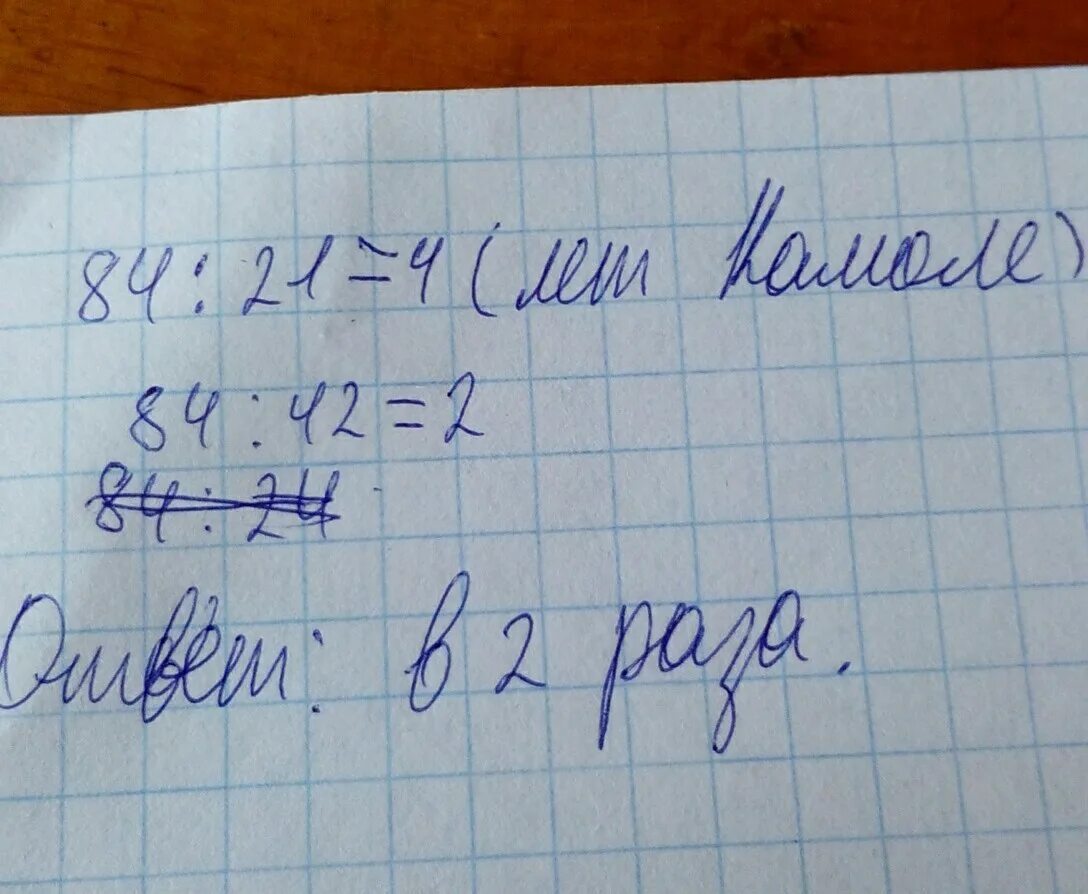 84 : 21 = 4 (лет Камоле)
84 : 42 = 2
84 : 24
Ответ: в 2 раза.